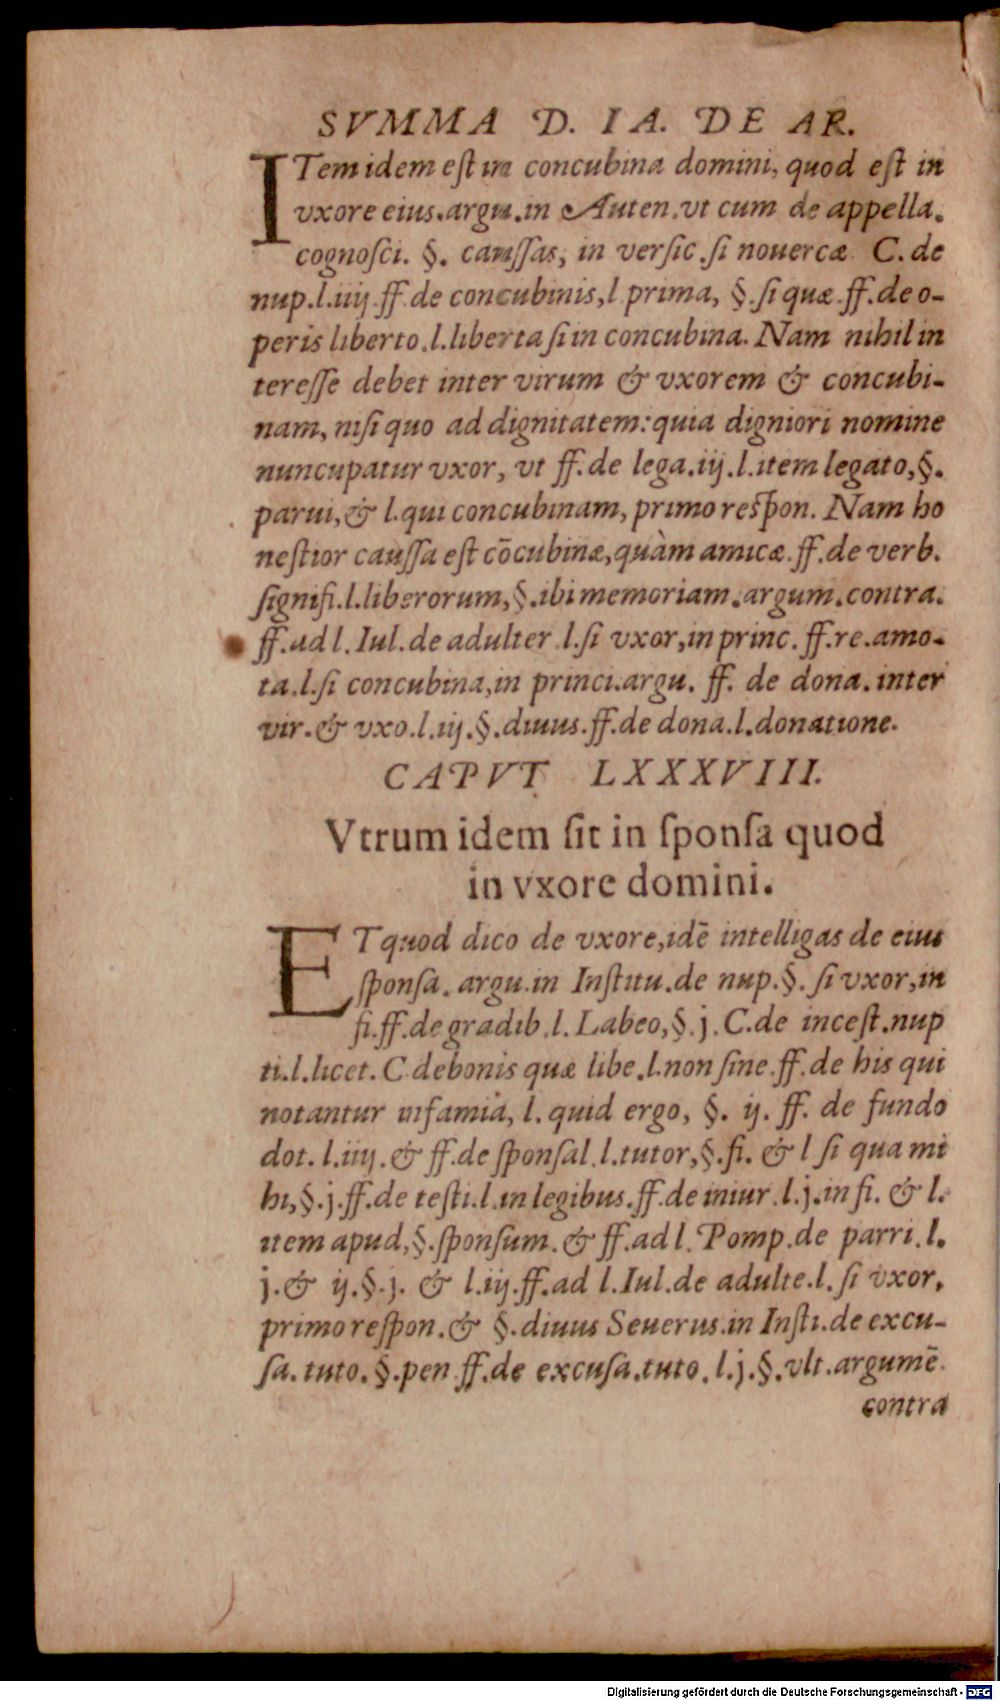 SVMMA D. IA. DE AR.
ITem idem eſt in concubina domini, quod eſt in
vxore eius.argu.in Auten.vt cum de appella.
cognoſci. §. cauſſas, in verſic.ſi nouercæ C. de
nup.l.iiij.ff.de concubinis,l prima, §.ſi quæ.ff.de o-
peris liberto.l.liberta ſi in concubina. Nam nihil in
tereſſe debet inter virum & vxorem & concubi-
nam, niſi quo ad dignitatem: quia digniori nomine
nuncupatur vxor, vt ff.de lega.iij.l.item legato,§.
parui,& l.qui concubinam, primo reſpon. Nam ho
neſtior cauſſa eſt cōcubinæ,quàm amicæ.ff.de verb.
ſignifi.l.liberorum,§.ibi memoriam.argum.contra.
ff.ad l. Iul.de adulter.l.ſi vxor,in princ.ff.re.amo-
ta.l.ſi concubina,in princi.argu. ff. de dona.inter
vir.& vxo.l.iij.§.diuus.ff.de dona.l.donatione.
CAPVT LXXXVIII.
Vtrum idem ſit in ſponſa quod
in vxore domini.
ETquod dico de vxore,idē intelligas de eius
ſponſa. argu.in Inſtitu.de nup.§. ſi vxor,in
fi.ff.de gradib.l. Labeo,§.j.C.de inceſt.nup
ti.l.licet. C.de bonis quæ libe.l.non ſine.ff.de his qui
notantur infamia, l. quid ergo, §. ij. ff. de fundo
dot.l.iiij.& ff.de ſponſal.l.tutor,§.fi. & l ſi qua mi
hi,§.j.ff.de teſti.l.in legibus.ff.de iniur.l.j.in fi. & l.
item apud,§.ſponſum.& ff.ad l. Pomp.de parri.l.
j.& ij.§.j. & l.iij.ff.ad l.Iul.de adulte.l.ſi vxor,
primo reſpon.& §.diuus Seuerus.in Inſti.de excu-
ſa.tuto.§.pen.ff.de excuſa.tuto.l.j.§.vlt.argumē.
contra
Digitalisierung gefördert durch die Deutsche Forschungsgemeinschaft - DFG